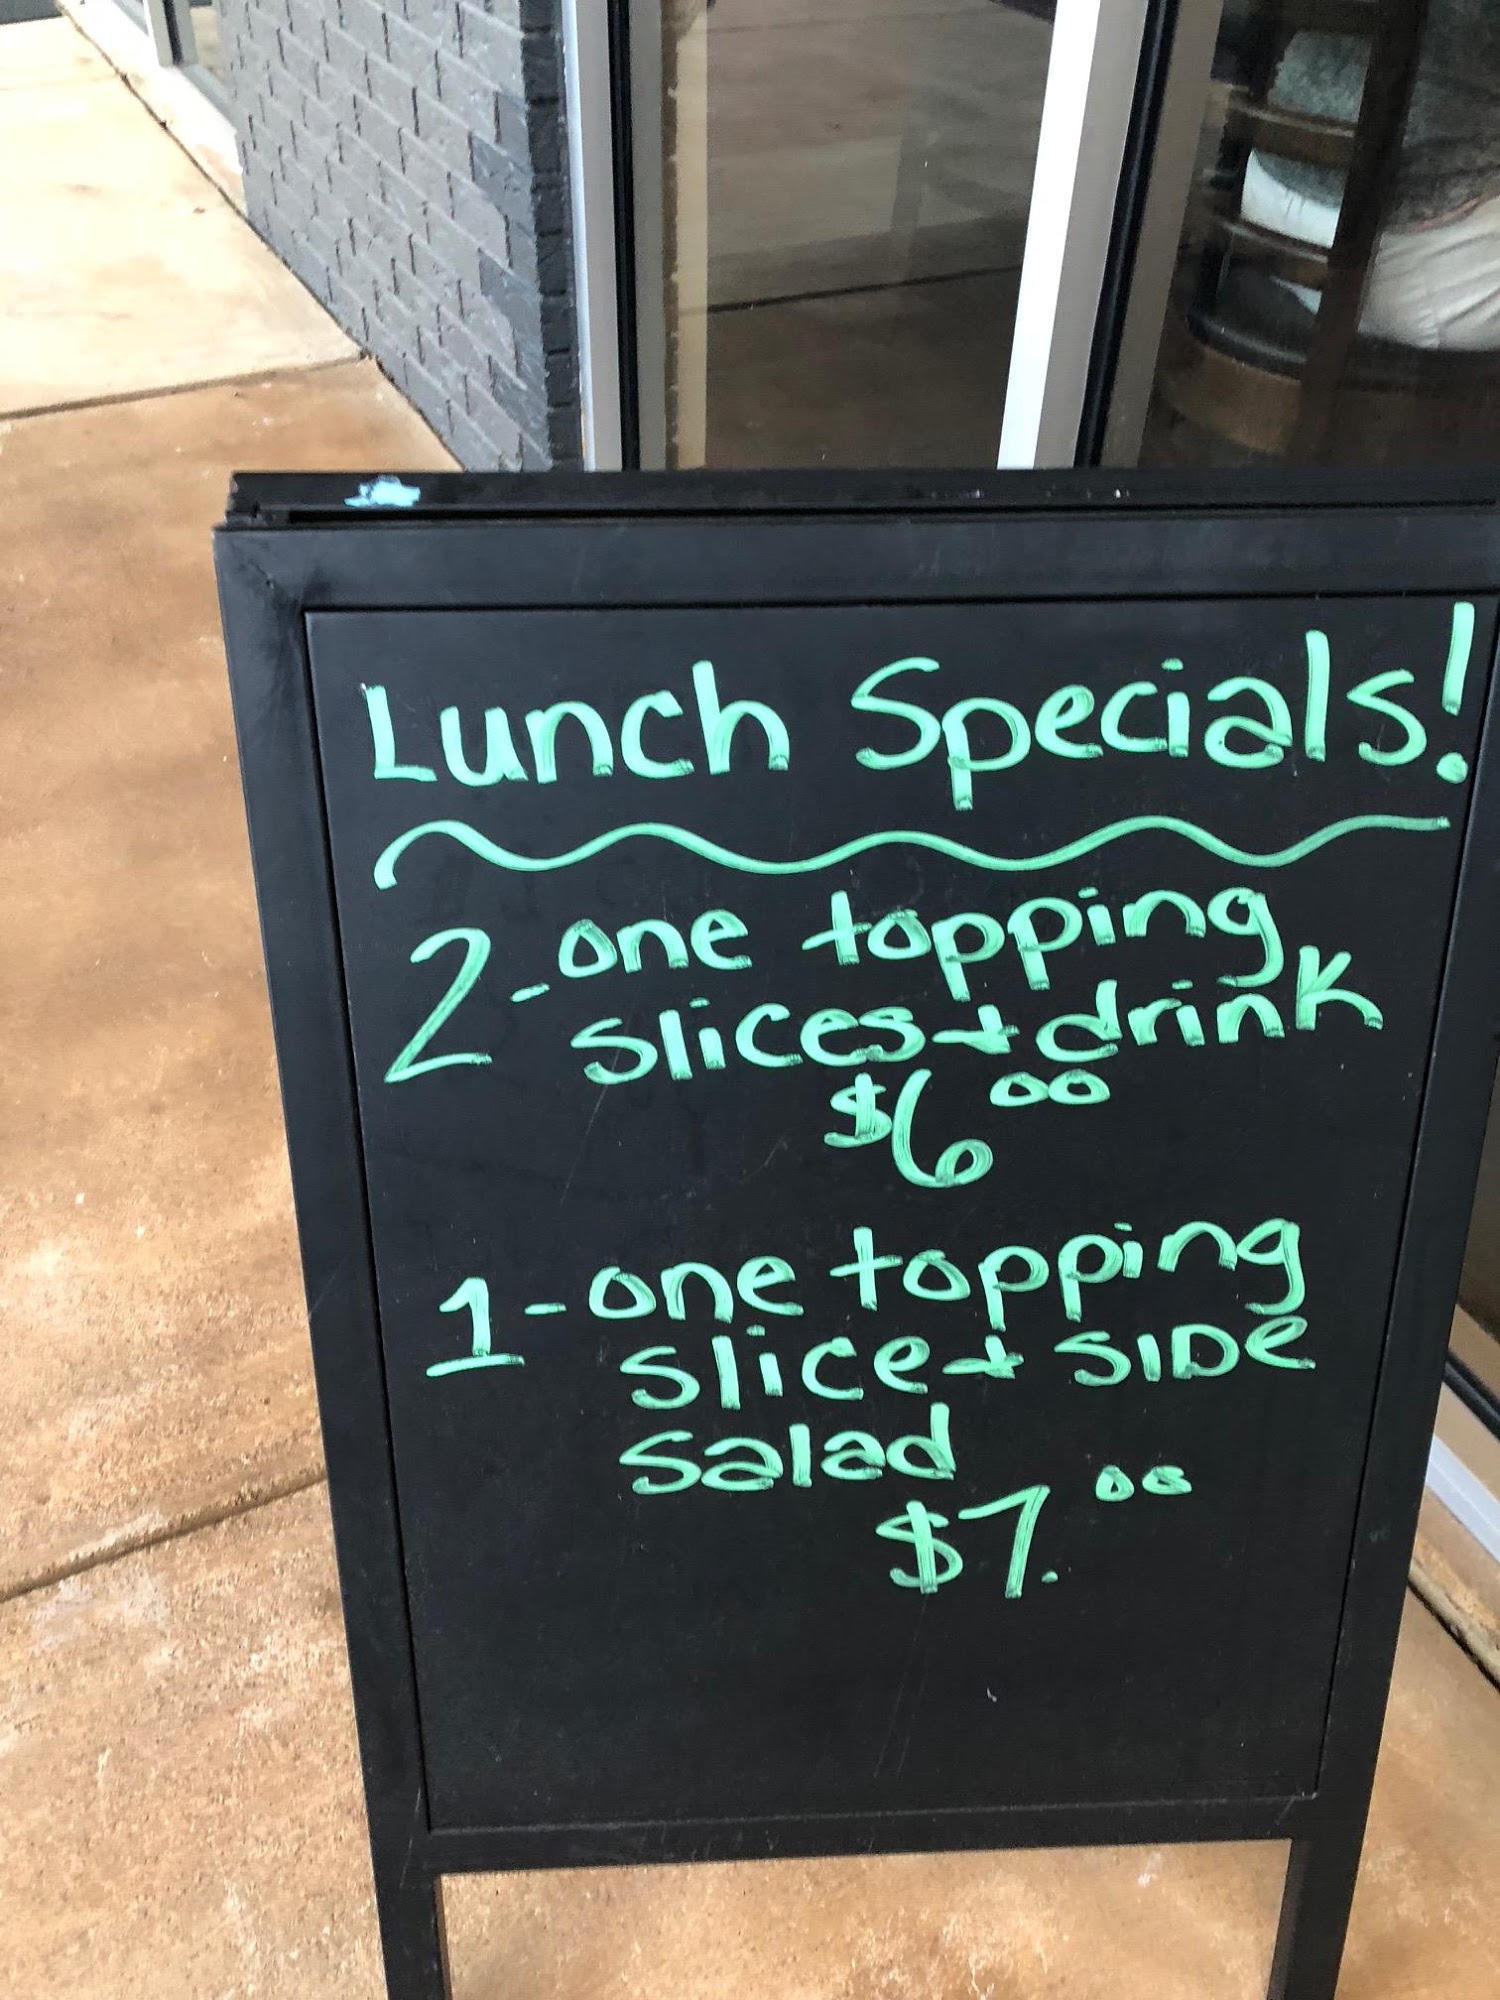 Lunch Specials!
2-one topping
slices + drink
$6 00
1-one topping
slice + SIDe
salad
$7. 00